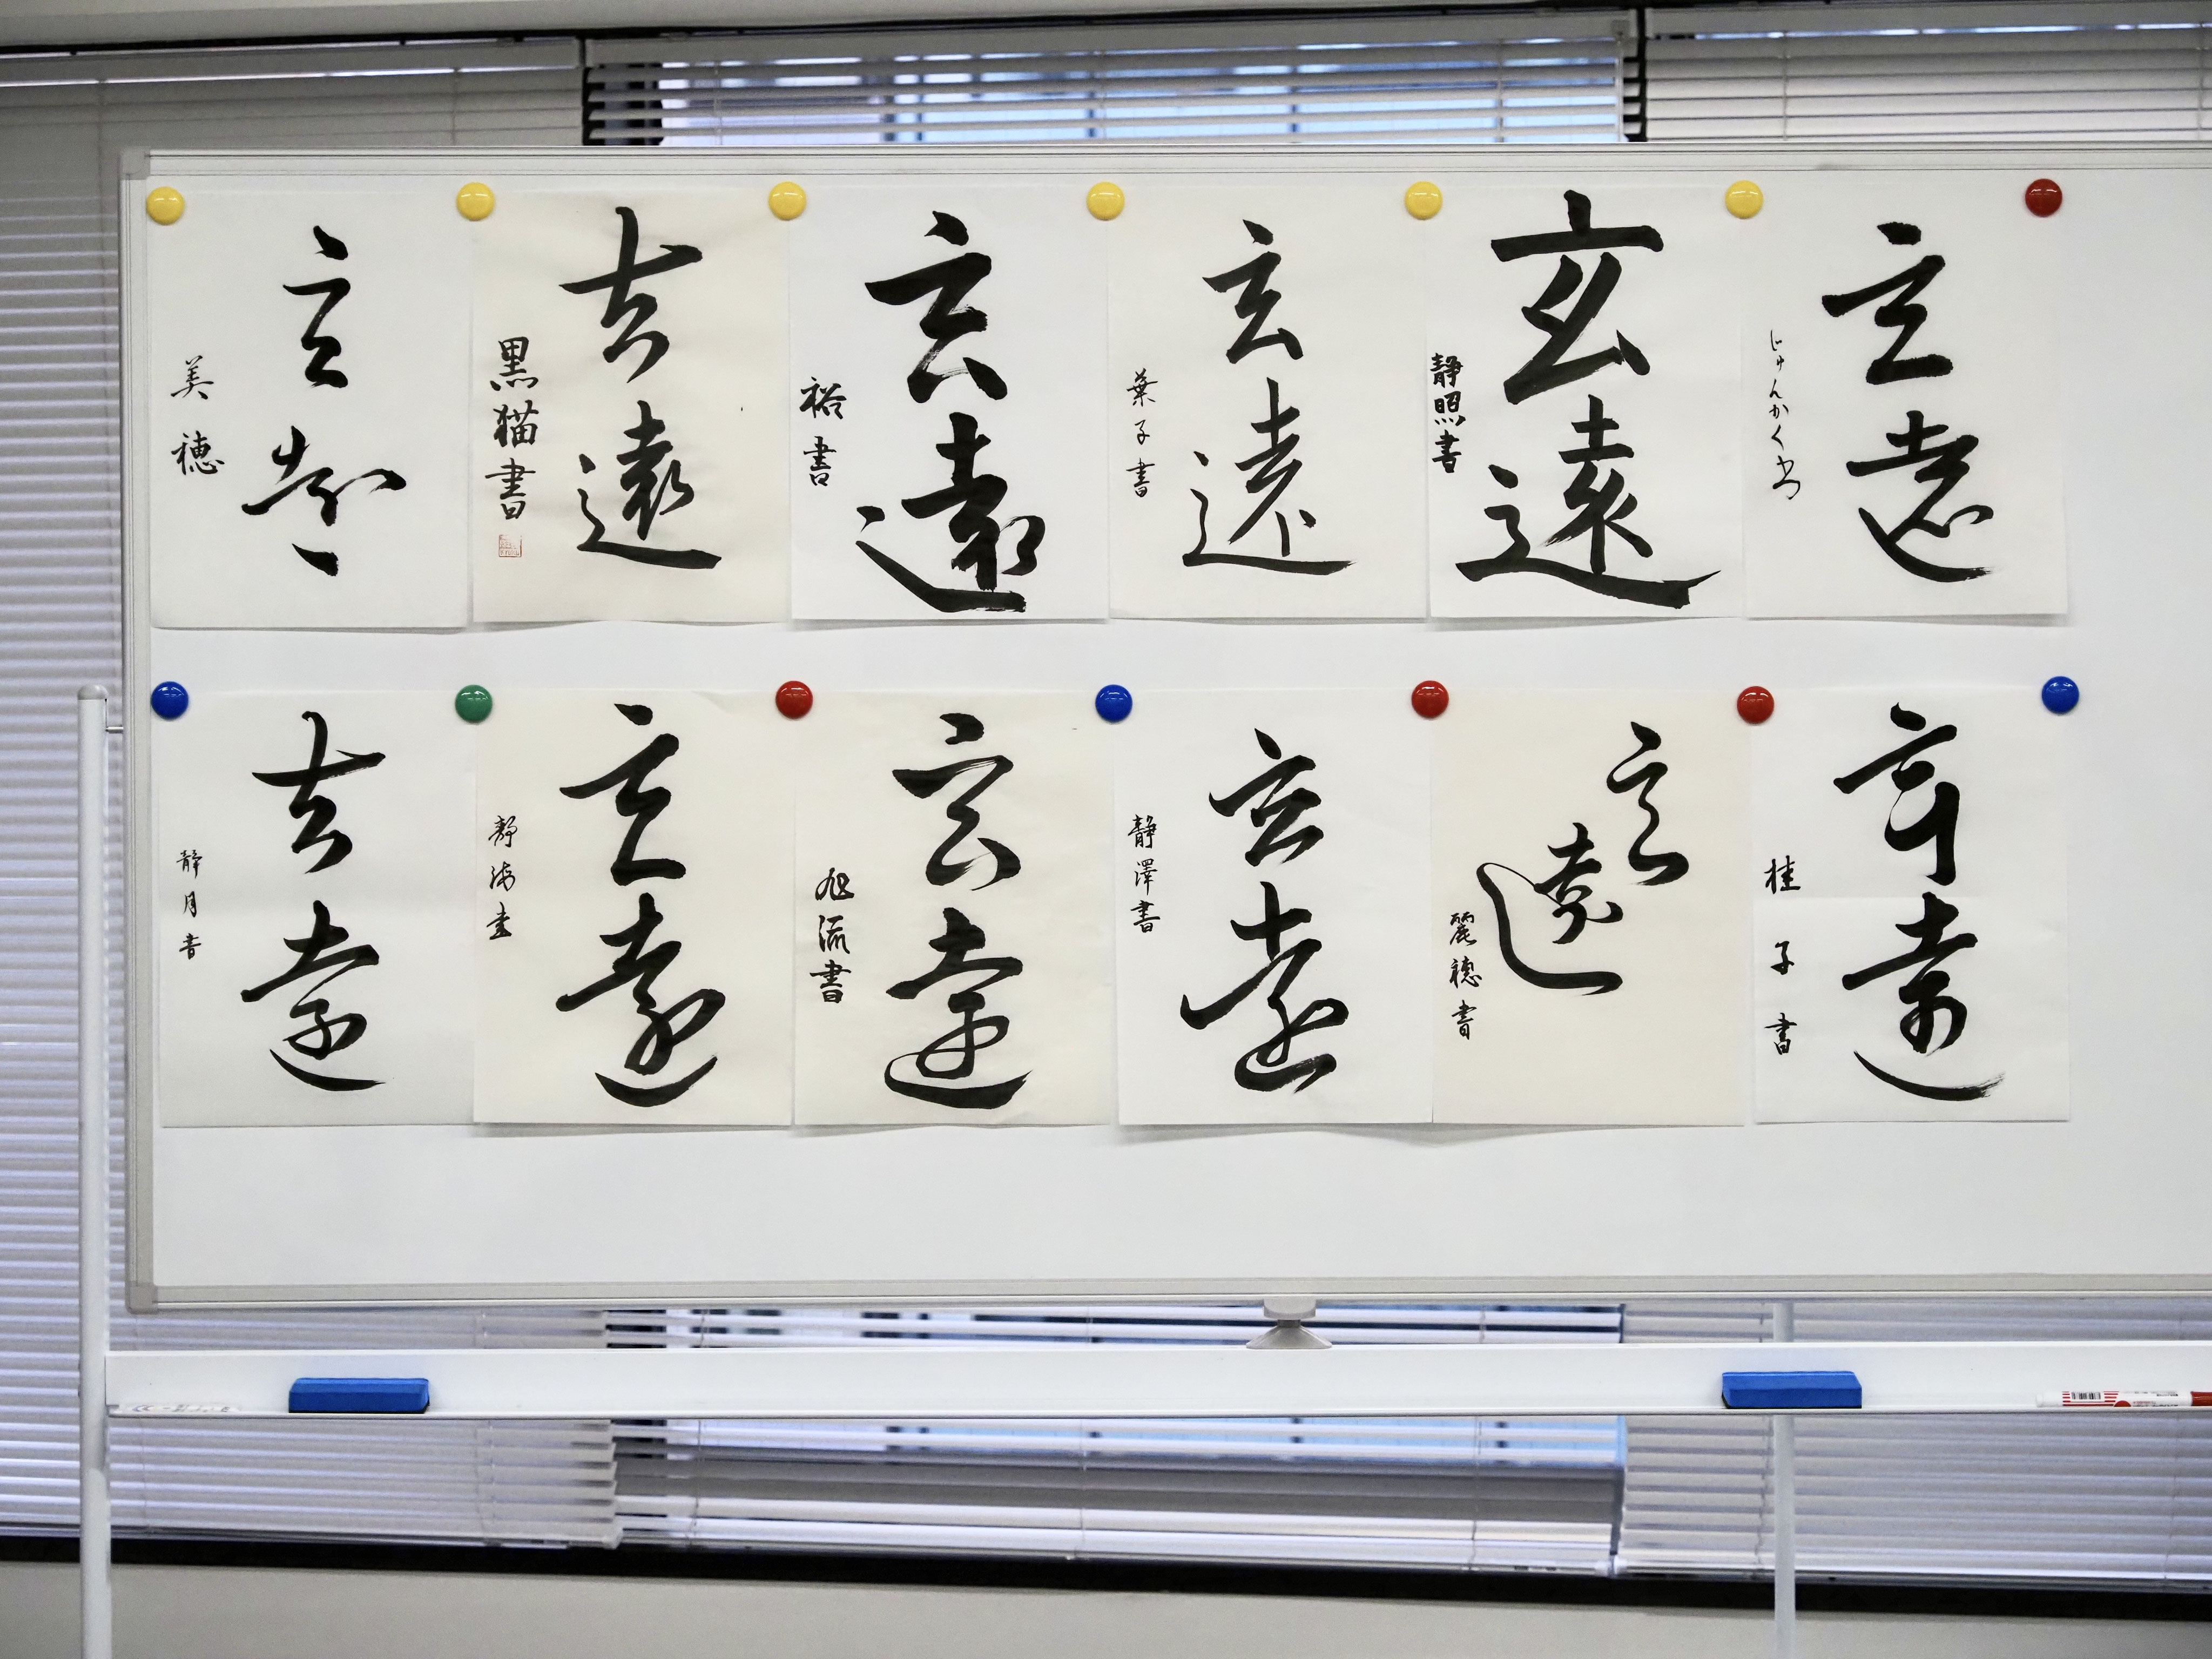 玄遠
美穂
玄遠
黒猫書
玄遠
裕書
玄遠
葉子書
玄遠
静照書
玄遠
じゅんかく書
玄遠
静月書
玄遠
玄遠
旭流書
玄遠
静澤書
玄遠
麗穂書
玄遠
桂子書